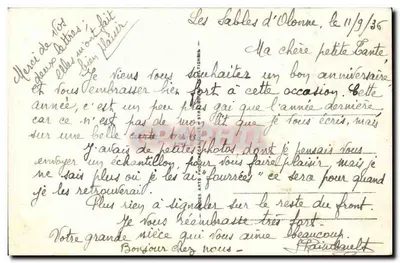 Les Sables d'Olonne, le 11/9/36
Merci de vos
deux lettres :
elles m'ont fait
bien plaisir
Ma chère petite Tante
Je viens vous souhaiter un bon anniversaire
et vous embrasser bien fort à cette occasion. Cette
année, c'est un peu plus gai que l'année dernière
car ce n'est pas de mon lit que je vous écris, mais
sur une belle carte
J'avais de petites photos dont je pensais vous
envoyer un échantillon, pour vous faire plaisir, mais je
ne sais plus où je les ai "fourrées" ce sera pour quand
je les retrouverai.
Plus rien à signaler sur le reste du front.
Je vous réembrasse très fort.
Votre grande nièce qui vous aime beaucoup.
Bonjour chez nous -